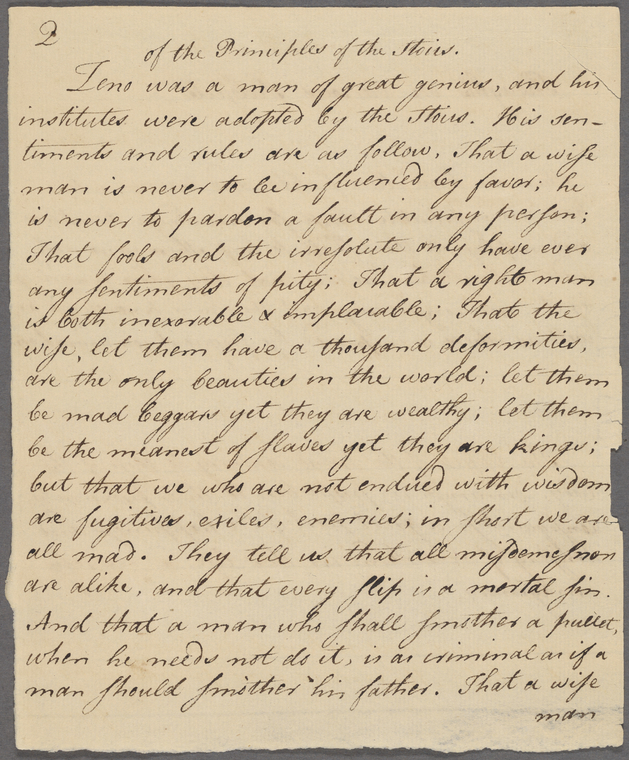 2
of the Principles of the Stoics.
Zeno was a man of great genius, and his
institutes were adopted by the Stoics. His sen-
timents and rules are as follow, That a wiſe
man is never to be influenced by favor; he
is never to pardon a fault in any perſon;
That fools and the irreſolute only have ever
any ſentiments of pity; That a right man
is both inexorable & implacable; That the
wiſe, let them have a thouſand deformities,
are the only beauties in the world; let them
be mad beggars yet they are wealthy; let them
be the meanest of ſlaves yet they are kings;
but that we who are not endued with wisdom
are fugitives, exiles, enemies; in ſhort we are
all mad. They tell us that all miſdemeſnon
are alike, and that every ſlip is a mortal ſin.
And that a man who ſhall ſmother a pullet,
when he needs not do it, is as criminal as if a
man ſhould ſmother his father. That a wiſe
man